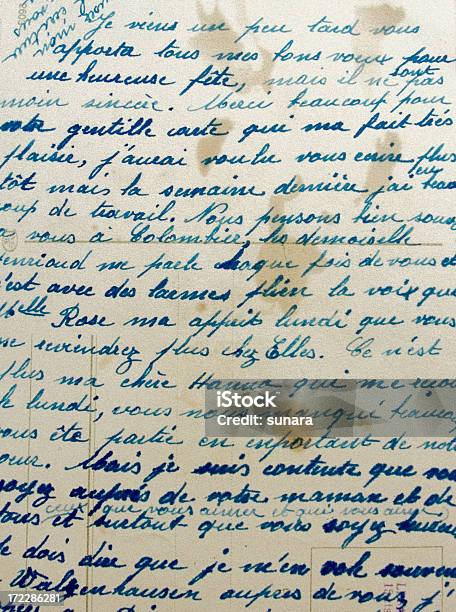 Je viens un peu tard vous
apporta tous mes bons voeux pour
une heureuse fête, mais il ne sont pas
moin sincère. Merci beaucoup pour
votre gentille carte qui ma fait très
plaisir, j'aurai voulu vous ecrire plus
tôt mais la semaine dernière j'ai eu beau
coup de travail. Nous pensons bien souve
a vous à Colombier, les demoiselle
me parle chaque fois de vous et
c'est avec des larmes plien la voix que
elle Rose ma apprit lundi que vous
ne reviendrez plus chez Elles. Ce n'est
plus ma chère Hanna qui me
le lundi, vous nous manqué beauco
vous ête partie en emportant de notr
coeur. Mais je suis contente que vou
soyez auprès de votre maman et de
tous ceux que vous aimer et qui vous aime,
et surtout que vous soyez
Je dois dire que je m'en
Walzenhausen aupres de vous j'
iStock
Credit: sunara
172286281